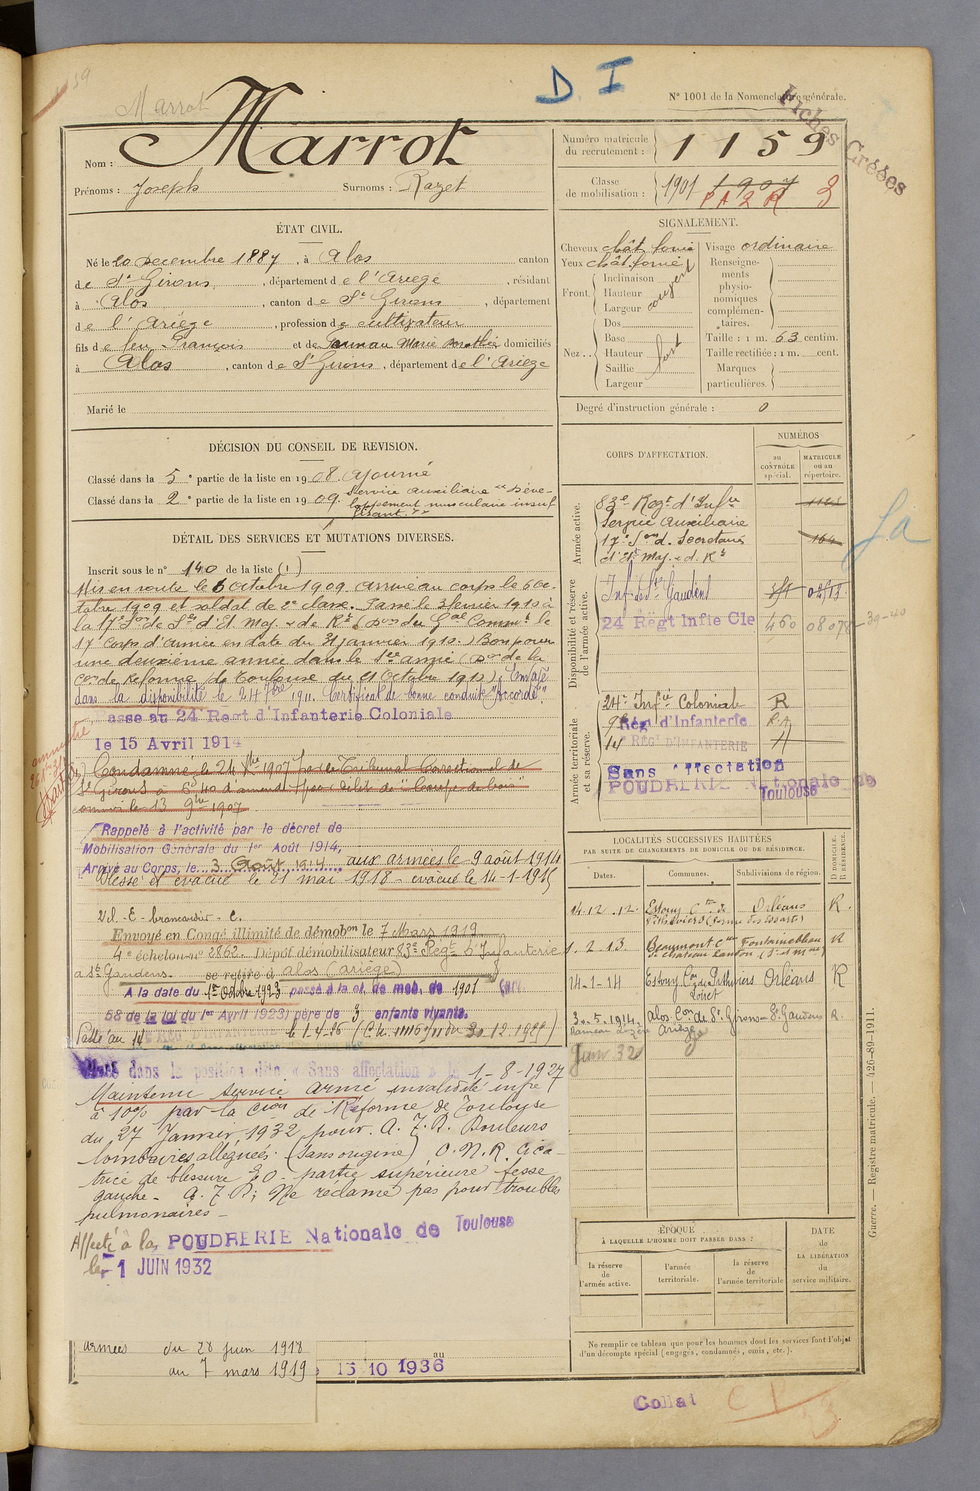 Marrot
D. I
N° 1001 de la Nomenclature générale.
Fiches Créées
Nom : Marrot
Prénoms : Joseph Surnoms : Razet
Numéro matricule du recrutement : 1159
Classe de mobilisation : 1901 1907
ÉTAT CIVIL.
Né le 20 Decembre 1887, à Alos canton
de St Girons, département de l'Ariège, résidant
à Alos, canton de St Girons, département
de l'Ariège, profession de cultivateur
fils de feu François et de Marie domiciliés
à Alos, canton de St Girons, département de l'Ariège
Marié le
SIGNALEMENT.
Cheveux chât. foncé Visage ordinaire
Yeux chât. foncé Renseignements physionomiques complémentaires.
Front Inclinaison Hauteur Largeur moyen
Nez Dos Base Hauteur Saillie Largeur fort
Taille : 1 m. 63 centim.
Taille rectifiée : 1 m. cent.
Marques particulières.
Degré d'instruction générale : 0
DÉCISION DU CONSEIL DE REVISION.
Classé dans la 5e partie de la liste en 1908. Ajourné
Classé dans la 2e partie de la liste en 1909. Service auxiliaire "Déve-
loppement musculaire insuf-
fisant."
DÉTAIL DES SERVICES ET MUTATIONS DIVERSES.
Inscrit sous le n° 140 de la liste (1)
Mis en route le 6 Octobre 1909. Arrivé au corps le 6 Oc-
tobre 1909 et soldat de 2e classe. Passé le 3 fevrier 1910 à
la 17e Son de Sres d'Et. Maj. & de Rt Don du Gal Commt le
17e Corps d'Armée en date du 31 janvier 1910.) Bon pour
une deuxième année dans le 1ère année (Don de la
Con de Reforme de Toulouse du 21 Octobre 1910). Envoyé
dans la disponibilité le 24 7bre 1911. Certificat de bonne conduite "Accordé".
asse au 24 Regt d'Infanterie Coloniale
le 15 Avril 1914
Condamné le 24 1907 par le Tribunal Correctionnel de
St Girons à 40 d'amende pour délit de "Coupe de bois"
commis le 13 9bre 1907
Rappelé à l'activité par le décret de
Mobilisation Générale du 1er Août 1914,
Arrivé au Corps, le 3 Août 1914 aux armées le 9 août 1914
Blessé et évacué le 21 mai 1918 - évacué le 14-1-1915
Envoyé en Congé illimité de démobon le 7 Mars 1919
4e échelon n° 2862. Dépôt démobilisateur 83e Regt d'Infanterie
à St Gaudens. se retire à Alos (Ariège)
A la date du 1er Octobre 1923 passé à la cl. de mob. de 1901
58 de la loi du 1er Avril 1923) père de 3 enfants vivants.
le 1-4-26
Placé dans la position dite « Sans affectation » le 1-8-1927
Maintenu service armé invalidité infre
à 10% par la Cion de Réforme de Toulouse
du 27 Janvier 1932 pour. Douleurs
lombaires alléguées. (Sans origine) Cica-
trice de blessure partie supérieure fesse
gauche. Ne réclame pas pour troubles
pulmonaires -
Affecté à la POUDRERIE Nationale de Toulouse
le 1 JUIN 1932
armées du 28 juin 1918
au 7 mars 1919
au
15 10 1936
CORPS D'AFFECTATION.
NUMÉROS
au CONTRÔLE spécial.
MATRICULE ou au répertoire.
Armée active.
83e Regt d'Infrie
Service Auxiliaire
17e Son d. Secrétaires 164
d'Et. Maj. & d. Rt
Disponibilité et réserve de l'armée active.
Inf. St Gaudens
24 Régt Infie Cle 460
Armée territoriale et sa réserve.
24e Infie Coloniale R
Rég. d'Infanterie
14 RÉGt D'INFANTERIE
Sans Affectation
POUDRERIE Nationale de
Toulouse
LOCALITÉS SUCCESSIVES HABITÉES
PAR SUITE DE CHANGEMENTS DE DOMICILE OU DE RÉSIDENCE.
Dates. Communes. Subdivisions de région. D DOMICILE. R RÉSIDENCE.
14-12-12 Estouy Cton de Pithiviers Orléans R.
1.2.13 Beaumont Cton Chateau Landon Fontainebleau R
14-1-14 Estouy Con de Pithiviers Loiret Orléans R
30.5.1914. Alos Con de St Girons Ariège St Gaudens R.
Juin 32
ÉPOQUE
À LAQUELLE L'HOMME DOIT PASSER DANS :
la réserve de l'armée active.
l'armée territoriale.
la réserve de l'armée territoriale
DATE de LA LIBÉRATION du service militaire.
Ne remplir ce tableau que pour les hommes dont les services font l'objet
d'un décompte spécial (engagés, condamnés, omis, etc.).
Guerre. — Registre matricule. — 426-89-1911.